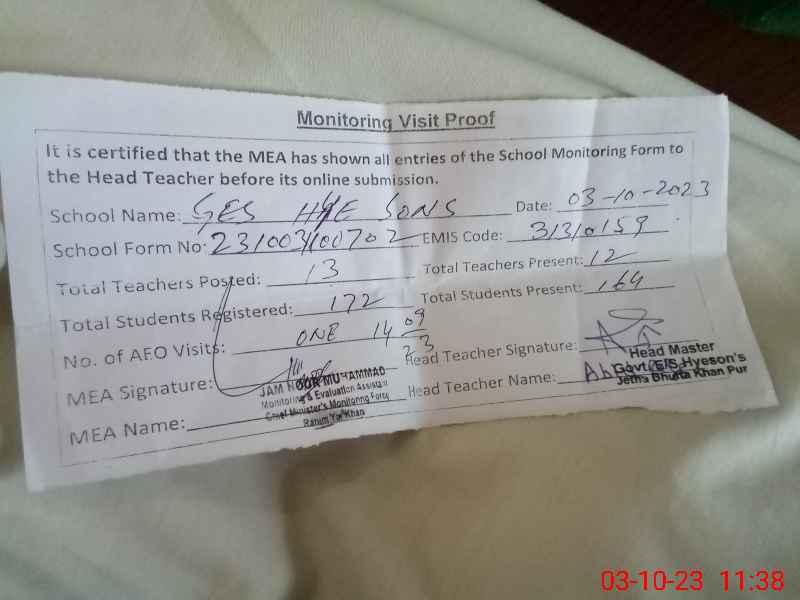 Monitoring Visit Proof
It is certified that the MEA has shown all entries of the School Monitoring Form to
the Head Teacher before its online submission.
School Name: GES HYE SONS Date: 03-10-2023
School Form No: 23100310070 2 EMIS Code: 31310159
Total Teachers Posted: 13 Total Teachers Present: 12
Total Students Registered: 172 Total Students Present: 164
No. of AEO Visits: ONE 14 09 23
MEA Signature: Head Teacher Signature:
MEA Name: Head Teacher Name:
JAM NOOR MUHAMMAD
Monitoring & Evaluation Assistant
Chief Minister's Monitoring Force
Rahim Yar Khan
Head Master
Govt: E/S Hyeson's
Jetha Bhutta Khan Pur
03-10-23 11:38